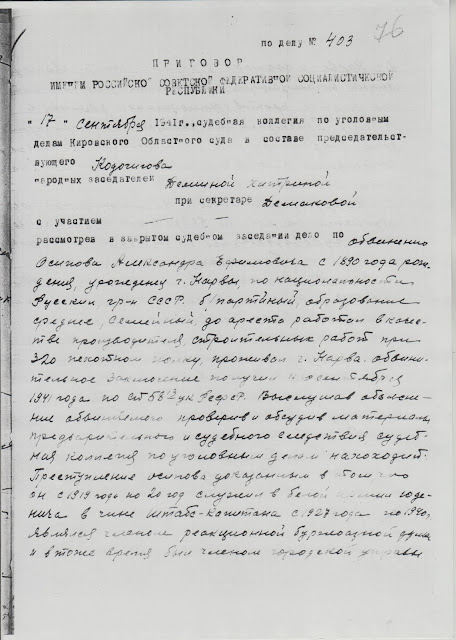 по делу № 403
76
ПРИГОВОР
ИМЕНЕМ РОССИЙСКОЙ СОВЕТСКОЙ ФЕДЕРАТИВНОЙ СОЦИАЛИСТИЧЕСКОЙ
РЕСПУБЛИКИ
"17" сентября 1941г., судебная коллегия по уголовным
делам Кировского Областного суда в составе председательст-
вующего Кодочигова
народных заседателей Деминой
при секретаре
с участием
рассмотрев в закрытом судебном заседании дело по обвинению
Осипова Александра Ефимовича с 1890 года рож-
дения, урожденец г. Нарвы, по национальности
Русский гр-н СССР. б/партийный, образование
среднее, семейный, до ареста работал в качес-
тве производителя строительных работ при
320 пехотном полку, проживал г. Нарва. обвини-
тельное заключение получил сентября
1941 года по ст 58/13 ук РСФСР. Выслушав объясне-
ние обвиняемого проверив и обсудив материал
предварительного и судебного следствия судеб-
ная коллегия по уголовным делам находит:
Преступление Осипова доказанным в том что
он с 1919 года по 20 год служил в белой армии Юде-
нича в чине Штабс-капитана с 1927 года по 1940,
являлся членом реакционной буржуазной думы
и в тоже время был членом городской управы